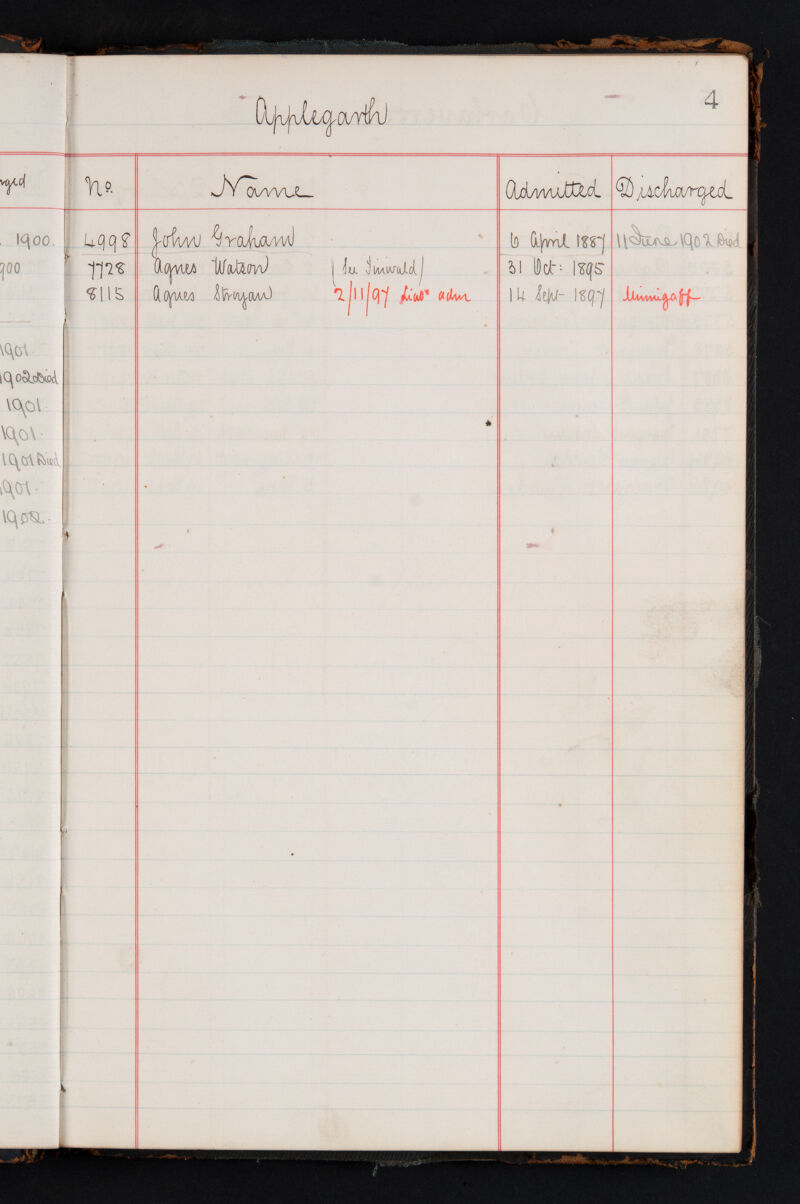 Applegarth
4
No. Name Admitted Discharged
4998 John Graham 6 April 1887 11 June 1902 Died
7728 Agnes Watson (See Tinwald) 31 Oct: 1895
8115 Agnes Strojan 2/11/97 Liaby adm 14 Sept 1897 Minnigaff
1900.
900
1901
1902 Died
1901
1901.
1901 Died
1901.
1902.